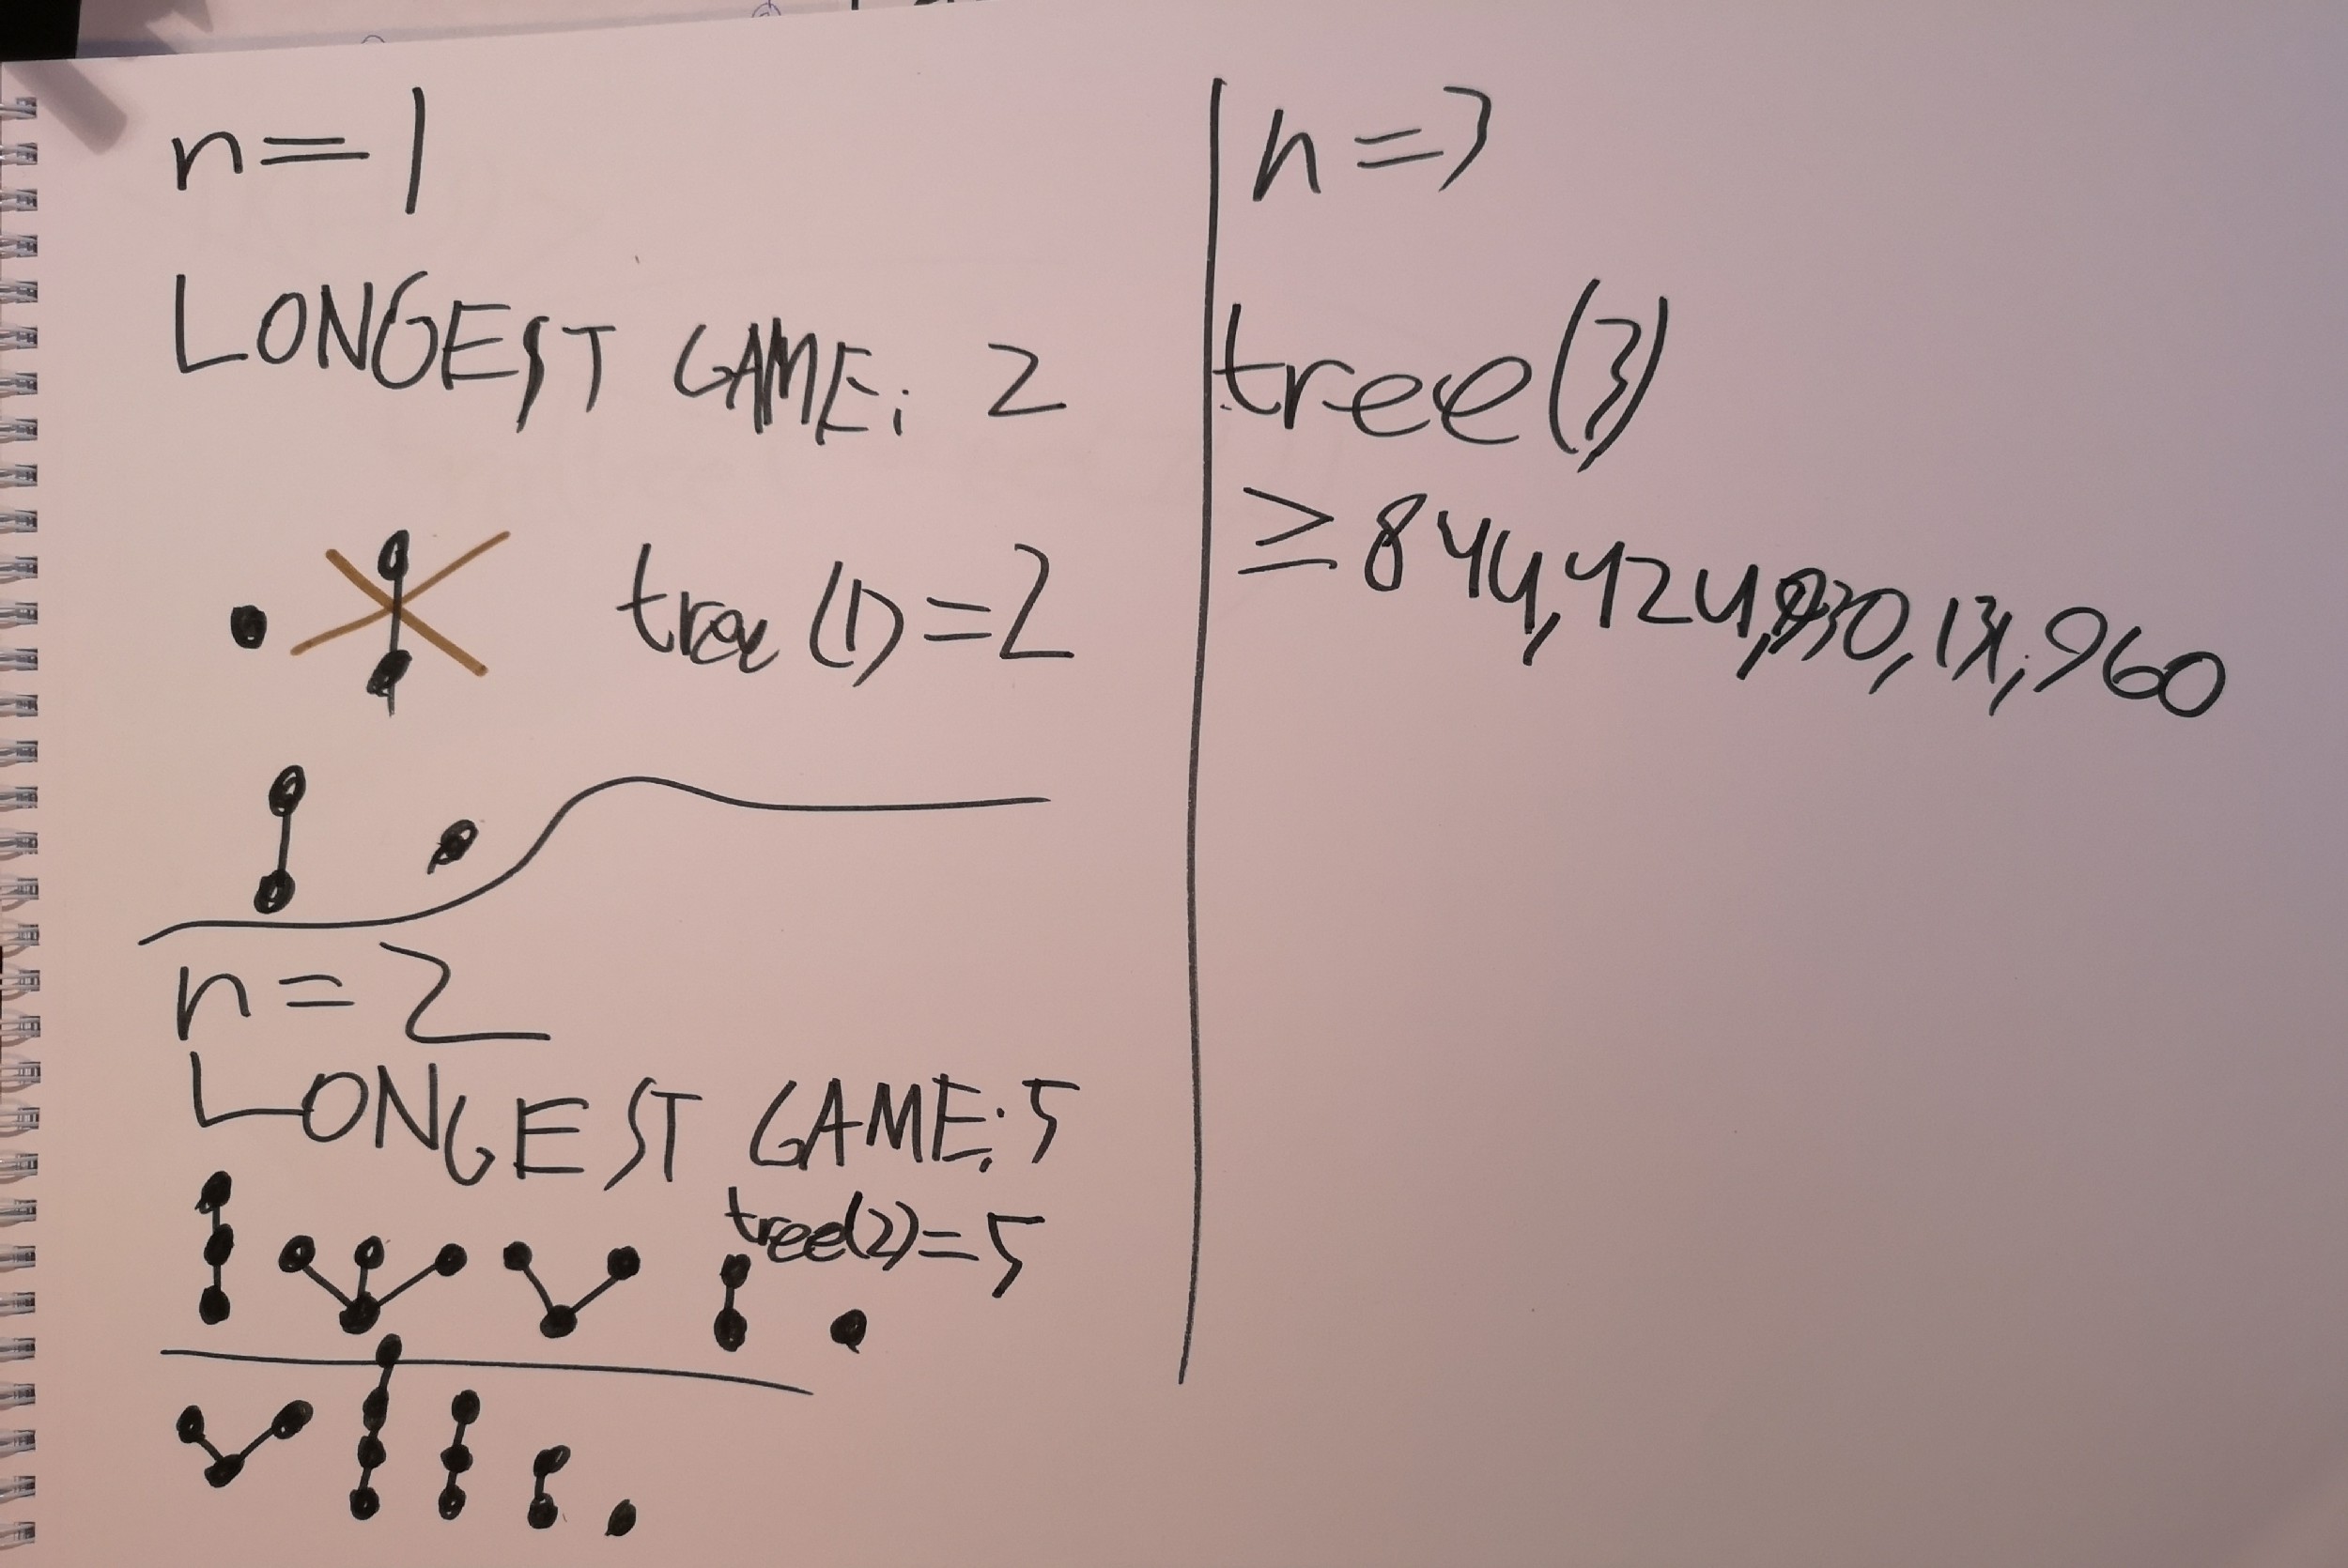 n=1
LONGEST GAME: 2
tree (1)=2
n=2
LONGEST GAME: 5
tree(2)=5
n=3
tree(3)
≥844,424,930,131,960